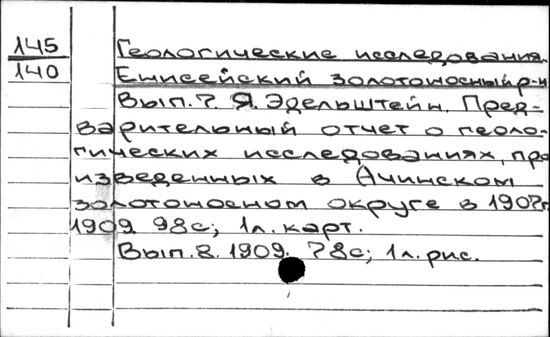 145
140
Геологические исследования.
Енисейский золотоносный р-н
Вып. 7. Я. Эдельштейн. Пред-
варительный отчет о геоло-
гических исследованиях, про
изведенных в Ачинском
золотоносном округе в 1907г.
1909 98с; 1л. карт.
Вып. 8. 1909. 78с; 1л. рис.